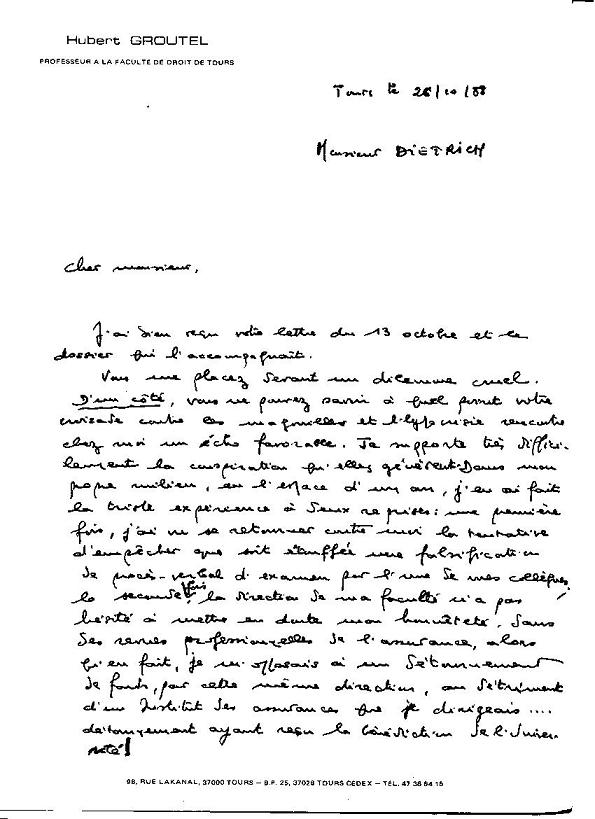 Hubert GROUTEL
PROFESSEUR A LA FACULTE DE DROIT DE TOURS
Tours le 26/10/88
Monsieur DIETRICH
Cher monsieur,
J'ai bien reçu votre lettre du 13 octobre et le
dossier qui l'accompagnait.
Vous me placez devant un dilemme cruel.
D'un côté, vous ne pouvez savoir à quel point votre
croisade contre les magouilles et l'hypocrisie rencontre
chez moi un écho favorable. Je supporte très diffici-
lement la conspiration qu'elles génèrent. Dans mon
propre milieu, en l'espace d'un an, j'en ai fait
la triste expérience à deux reprises : une première
fois, j'ai vu se retourner contre moi la tentative
d'empêcher que soit étouffée une falsification
de procès-verbal d'examen par l'une de mes collègues,
la seconde fois, la direction de ma faculté n'a pas
hésité à mettre en doute mon honnêteté, dans
des revues professionnelles de l'assurance, alors
qu'en fait, je m'opposais à un détournement
de fonds, par cette même direction, au détriment
d'un Institut des assurances que je dirigeais ....
détournement ayant reçu la bénédiction de l'Univer-
sité !
98, RUE LAKANAL, 37000 TOURS — B.P. 25, 37028 TOURS CEDEX — TEL. 47 38 64 15